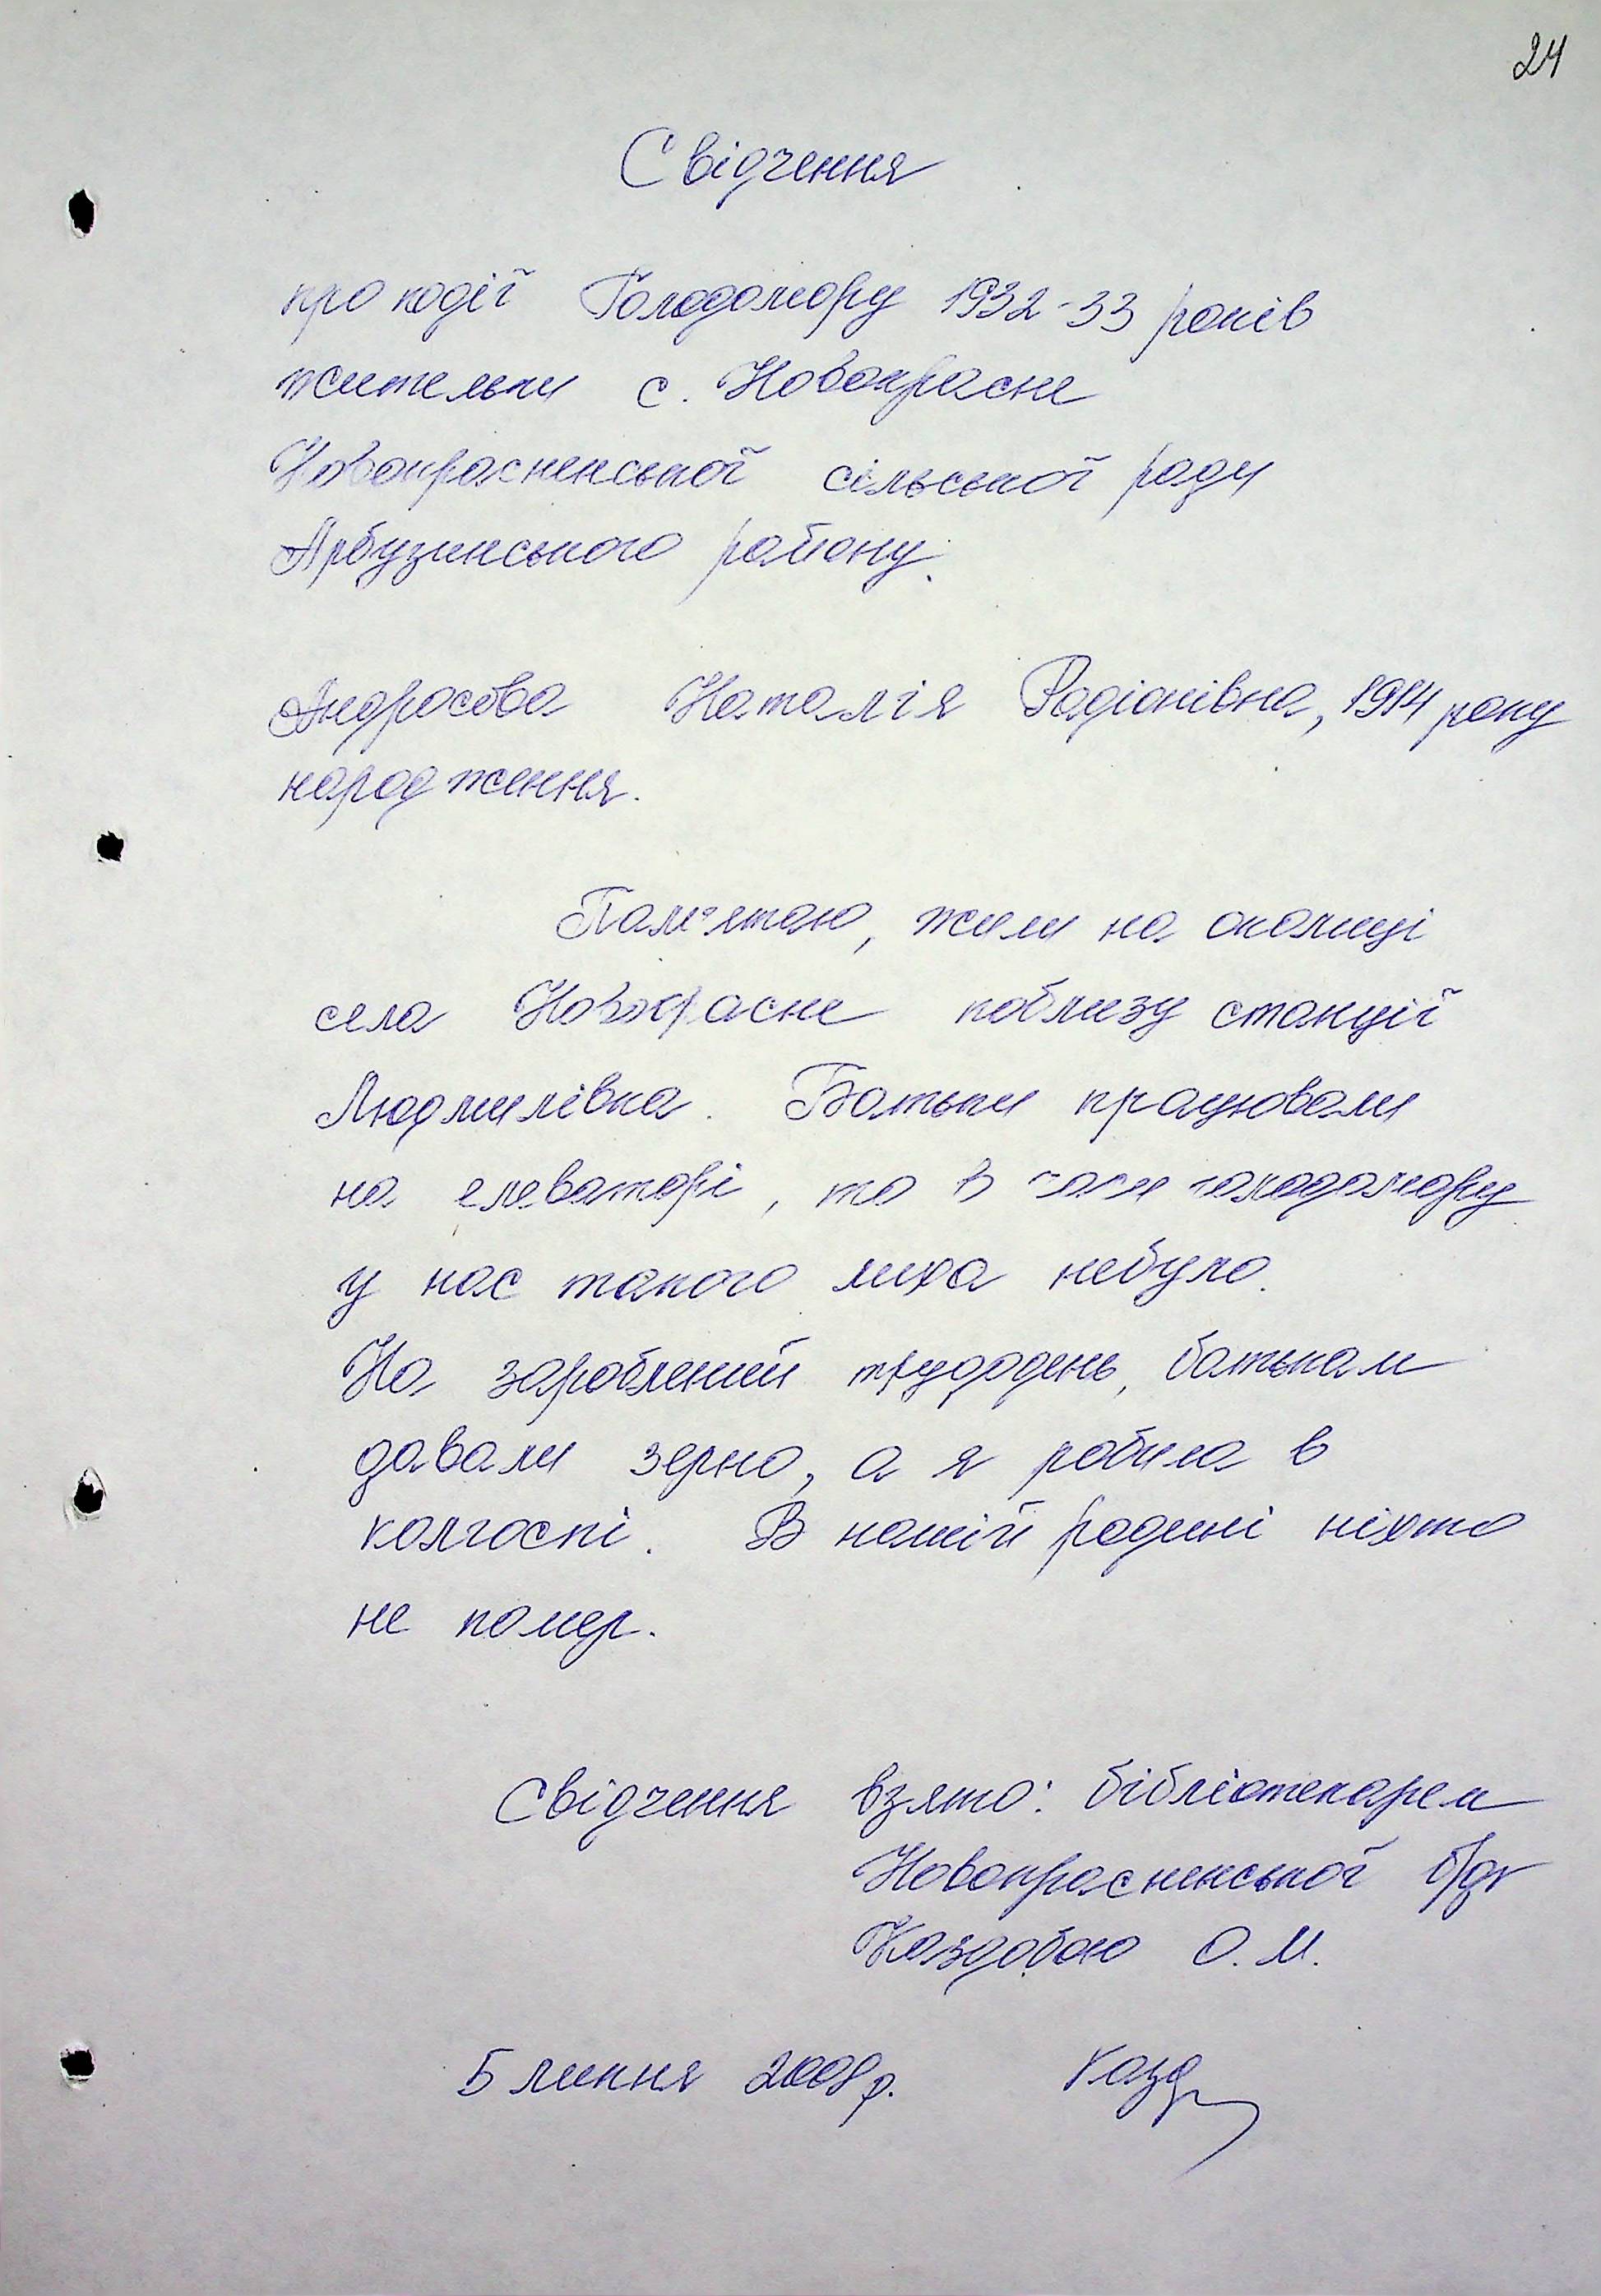 24
Свідчення
про події Голодомору 1932-33 років
жительки с. Новокрасне
Новокрасненської сільської ради
Арбузинського району.
Андросова Наталія Радіонівна, 1914 року
народження.
Пам'ятаю, жили на околиці
села Новокрасне поблизу станції
Людмилівка. Батьки працювали
на елеваторі, то в часи голодомору
у нас такого лиха небуло.
На зароблений трудодень, батькам
давали зерно, а я робила в
колгоспі. В нашій родині ніхто
не помер.
Свідчення взято: бібліотекарем
Новокрасненської б/ф
Каздобою О.М.
5 липня 2008 р. Казд